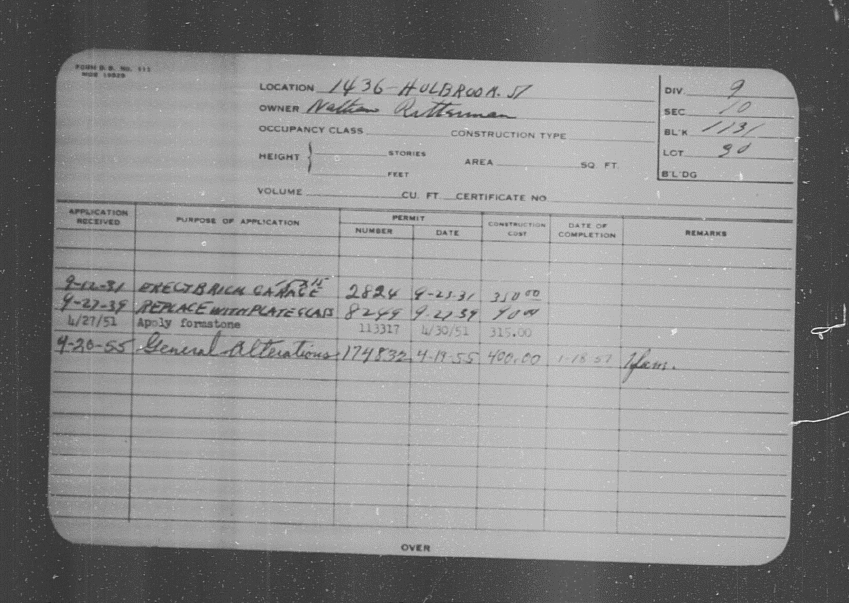 FORM B.B. No. 111
LOCATION 1436-HOLBROOK. ST
OWNER Nathan Ritterman
OCCUPANCY CLASS CONSTRUCTION TYPE
HEIGHT { STORIES FEET AREA SQ. FT.
VOLUME CU. FT. CERTIFICATE NO.
DIV. 9
SEC. 10
BL'K 1131
LOT 90
B'L'DG
APPLICATION RECEIVED PURPOSE OF APPLICATION PERMIT NUMBER DATE CONSTRUCTION COST DATE OF COMPLETION REMARKS
9-12-31 ERECT BRICK GARAGE 2824 9-23-31 350.00
9-27-39 REPLACE WITH PLATE GLASS 8249 9-27-39 90.00
4/27/51 Apply formstone 113317 4/30/51 315.00
4-20-55 General Alterations 174832 4-19-55 400.00 1-18-57 1 fam.
OVER